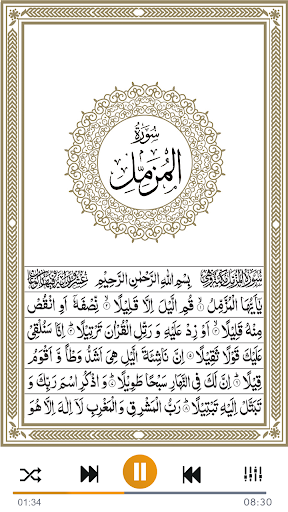 سُورَةُ
المُزمّل
بِسْمِ اللّٰهِ الرَّحْمٰنِ الرَّحِيْمِ
يٰۤاَيُّهَا الْمُزَّمِّلُ ۙ۝ قُمِ الَّيْلَ اِلَّا قَلِيْلًا ۙ۝ نِّصْفَهٗۤ اَوِ انْقُصْ
مِنْهُ قَلِيْلًا ۙ۝ اَوْ زِدْ عَلَيْهِ وَ رَتِّلِ الْقُرْاٰنَ تَرْتِيْلًا ؕ۝ اِنَّا سَنُلْقِيْ
عَلَيْكَ قَوْلًا ثَقِيْلًا ۝ اِنَّ نَاشِئَةَ الَّيْلِ هِيَ اَشَدُّ وَطْاً وَّ اَقْوَمُ
قِيْلًا ؕ۝ اِنَّ لَكَ فِي النَّهَارِ سَبْحًا طَوِيْلًا ؕ۝ وَ اذْكُرِ اسْمَ رَبِّكَ وَ
تَبَتَّلْ اِلَيْهِ تَبْتِيْلًا ؕ۝ رَبُّ الْمَشْرِقِ وَ الْمَغْرِبِ لَاۤ اِلٰهَ اِلَّا هُوَ
01:34 08:30